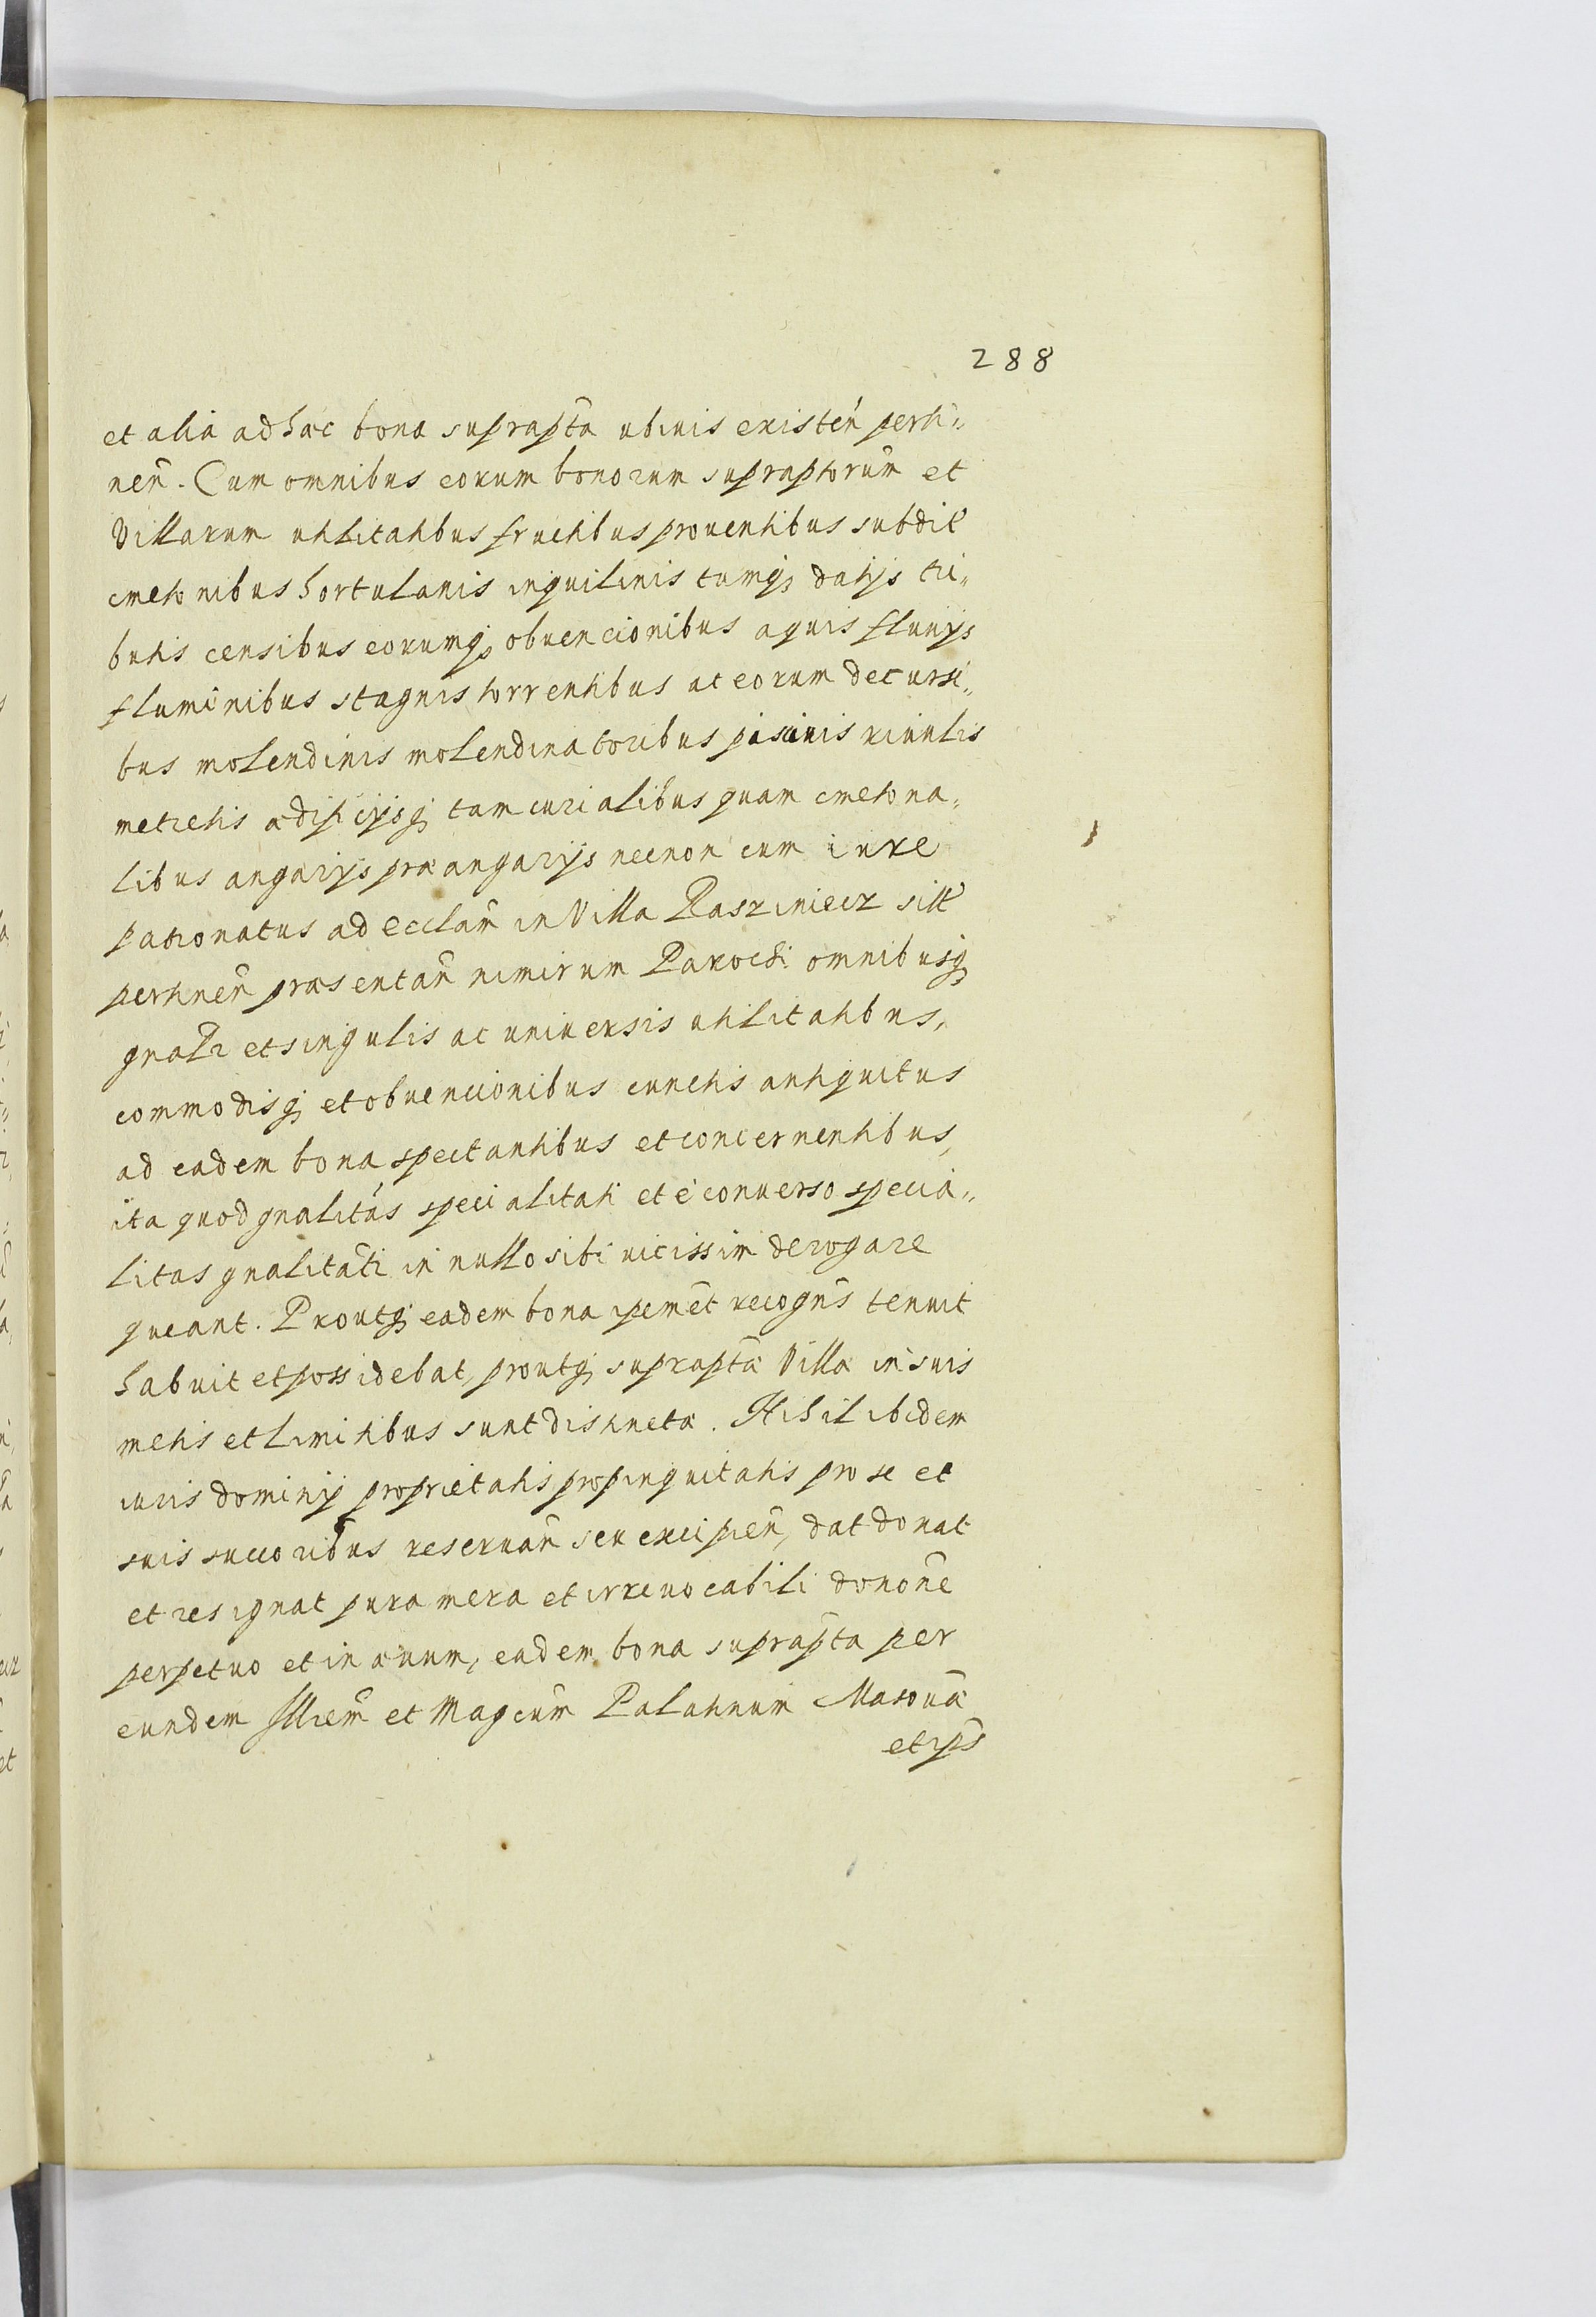 288
et alia ad hæc bona suprapta ubiuis existen̄ perti„
nen̄. Cum omnibus eorum bonorum supraptorum̄ et
Villarum utilitatibus fructibus prouentibus subdit̄
cmetonibus hortulanis inquilinis eorumq̨ datijs tri„
butis censibus eorumq̨ obuencionibus aquis fluuijs
fluminibus stagnis torrentibus ac eorum decursi„
bus molendinis molendinatoribus piscinis riuulis
metretis ædificijsq̨ tam curialibus quam cmetona„
libus angarijs præangarijs necnon cum iure
patronatus ad ecclam̄ in Villa Rasziniecz sitt̄
pertinen̄ præsentan̄ nimirum Parochi omnibusq̨
gnalr et singulis ac uniuersis utilitatibus,
commodisq̨ et obuencionibus cunctis antiquitus
ad eadem bona spectantibus et concernentibus,
ita quod gnalitas specialitati et è conuerso specia„
litas gnalitati in nullo sibi uicissim derogare
queant. Proutq̨ eadem bona ipemet recogn̄s tenuit
habuit et possidebat, proutq̨ supraptæ Villæ in suis
metis et limitibus sunt distinctæ. Nihil ibidem
iuris dominij proprietatis propinquitatis pro se et
suis succoribus reseruan̄ seu excipien̄, dat donat
et resignat pura mera et irreuocabili donone
perpetuo et in æuum, eadem bona suprapta per
eundem Illrem̄ et Magcum̄ Palatinum Masouiæ
et ips